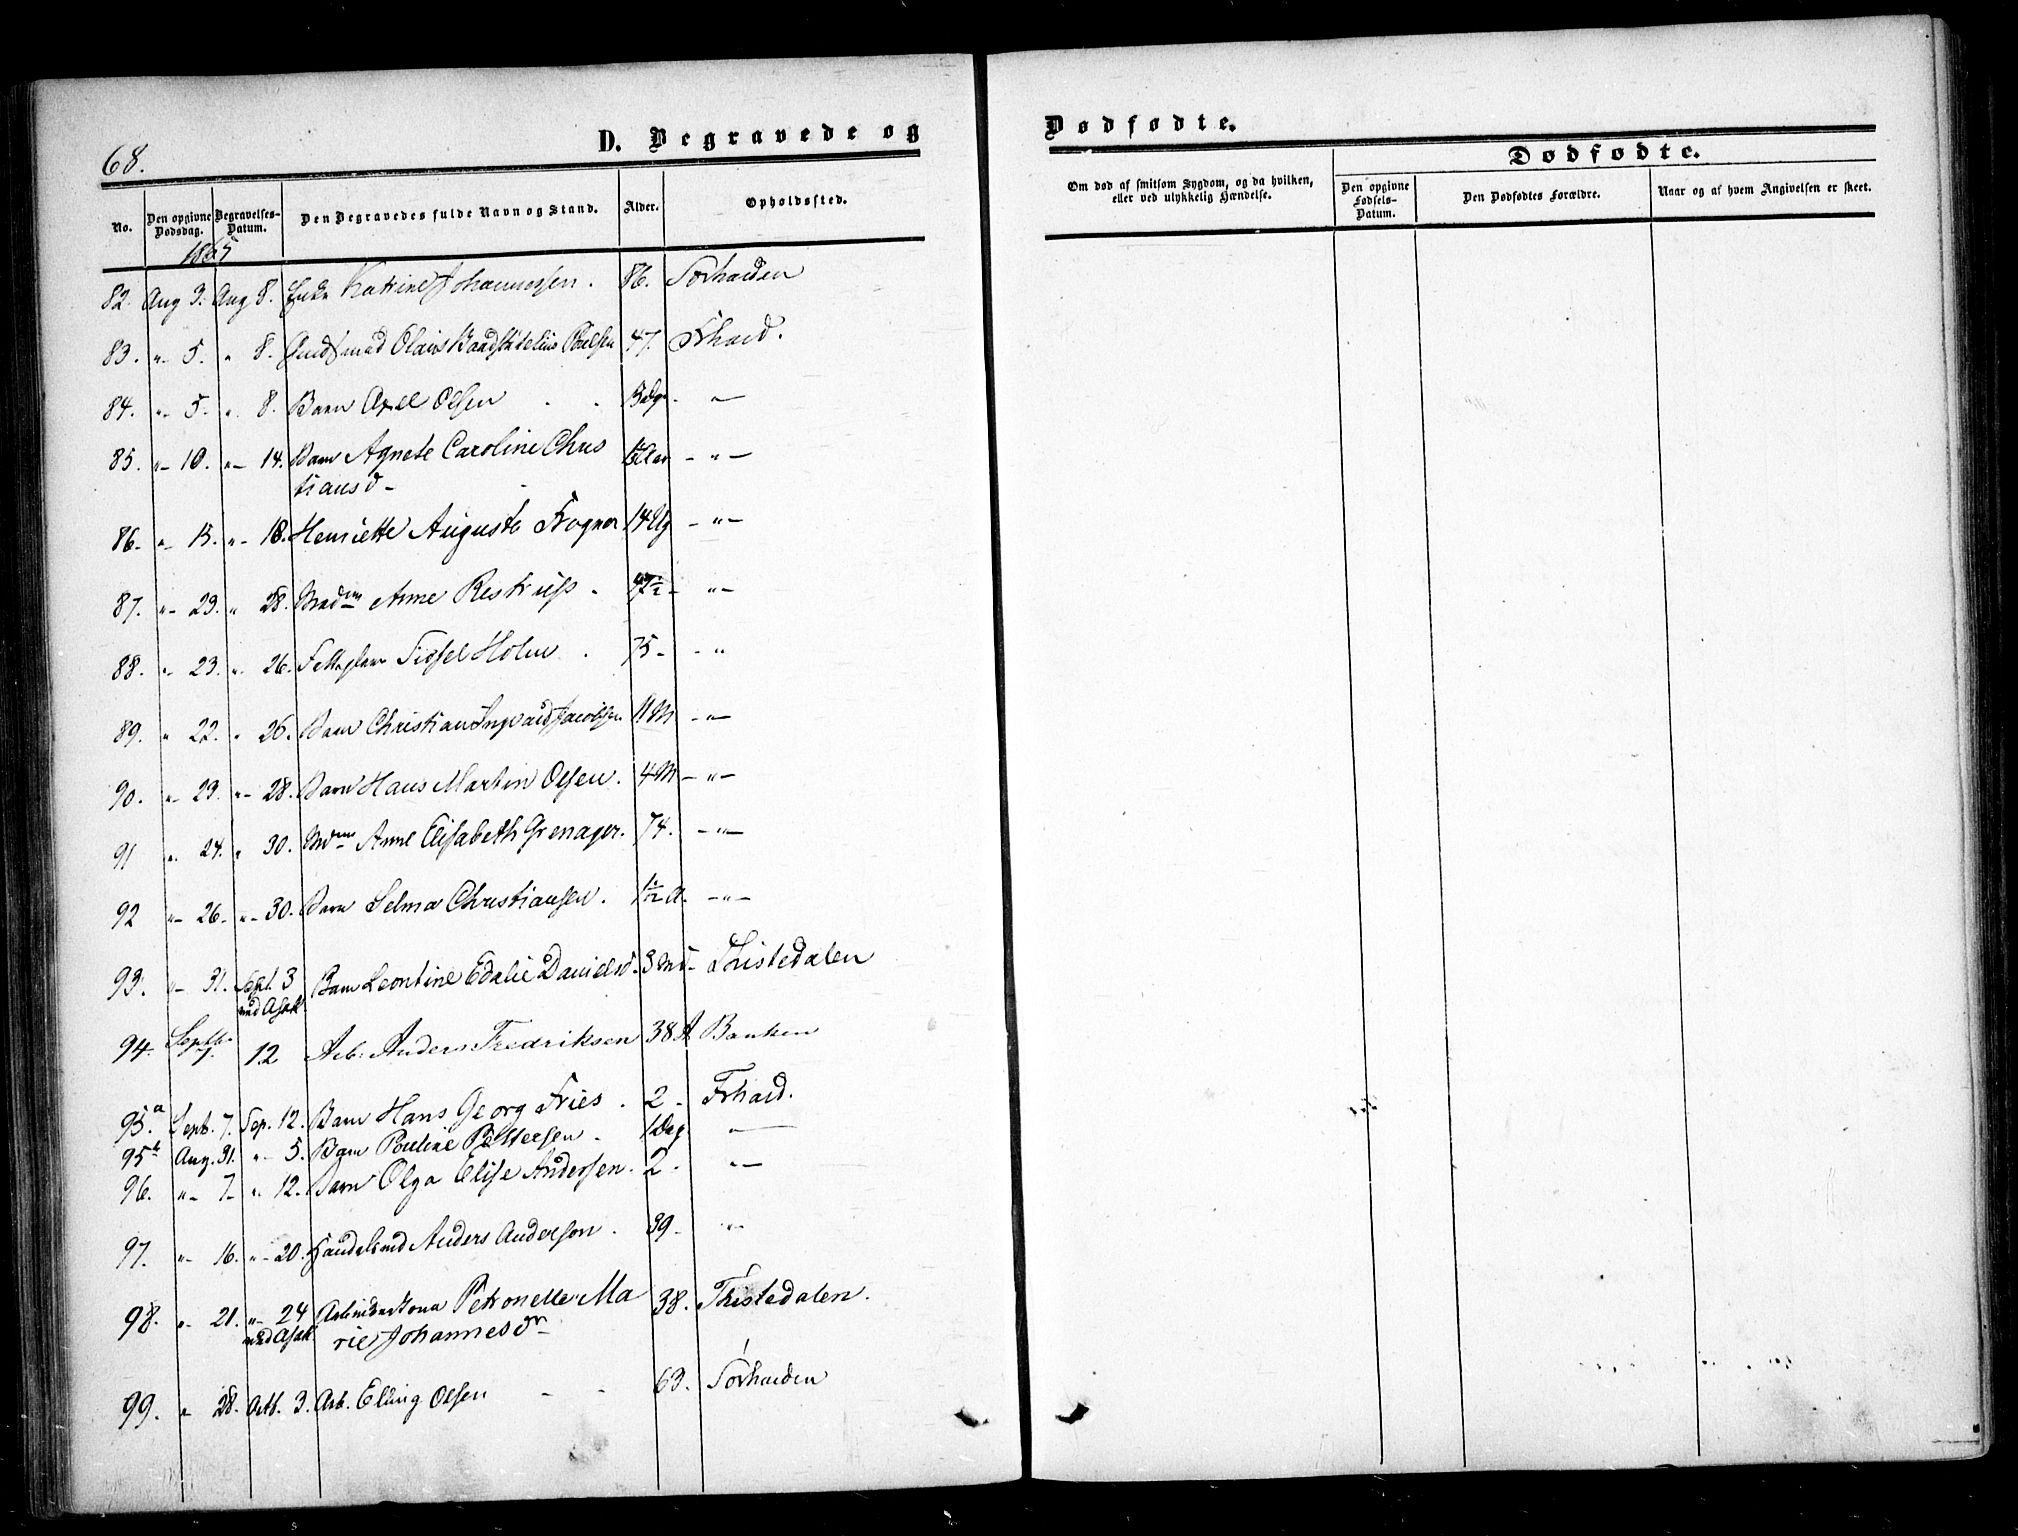 68.
D. Begravede og
No.
Den opgivne Dødsdag.
Begravelses-Datum.
Den Begravedes fulde Navn og Stand.
Alder.
Opholdssted.
1865
82. Aug 3. Aug 8. Enke Katrine Johannessen. 86. Sørhalden
83. " 5. " 8. Olaus Poulsen 47. Frhald.
84. "- 5. " 8. Barn Axel Olsen - - "-
85. "- 10. "- 14. Barn Agnete Caroline Chris
tiansd - - "-
86. "- "- 18. Henriette Auguste Frogner 14 Ug - "-
87. "- 23. " 28. Madm Anne Restrup. "-
88. "- 23. " 26. Sidsel Holm . 75 - - "
89. " 22. " 26. Barn Christian Ingvald Jacobsen 11 M - "-
90. "- 23. "- 28. Barn Hans Martin Olsen. 4 M - "-
91 " 24. " 30. Mdm Anne Elisabeth Grenager. 74. - "-
92 "- 26. "- 30. Barn Selma Christiansen. -"-
93. "- 31. Sept. 3 Barn Leontine Edalie Danielsd. 3 Md - Thistedalen
ved Asak
94. Septbr 7. 12 Arb. Anders Fredriksen 38 A Banken
95.a Septb. 7. Sep. 12. Barn Hans Georg Fries . 2 - Frhald.
95b Aug. 31. "- 5. Barn Pouline Pettersen - 1 Dag
96. "- 7- " 12. Barn Olga Elise Andersen. 2. "-
97. "- 16. "- 20. Handelsmd Anders Anderson . 39 - "
98. "- 21. "- 24 Arbeiderkone Petronelle Ma 38. Thistedalen.
ved Asak rie Johannesdr
99. " 28. Octb. 3. Arb. Elling Olsen - - 63. Sørhalden
Dødfødte.
Om død af smitsom Sygdom, og da hvilken,
eller ved ulykkelig Hændelse.
Dødfødte.
Den opgivne Fødsels-Datum.
Den Dødfødtes Forældre.
Naar og af hvem Angivelsen er skeet.